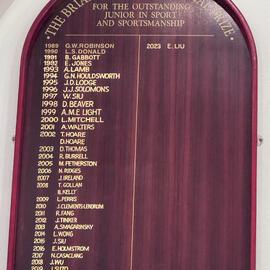 ·THE BRIA
RIZE·
FOR THE OUTSTANDING
JUNIOR IN SPORT
AND SPORTSMANSHIP
1989 G.W.ROBINSON
1990 L.S. DONALD
1991 B. GABBOTT
1992 E. JONES
1993 A. LAMB
1994 G.N HOULDSWORTH
1995 J.D. LODGE
1996 J.J. SOLOMONS
1997 W. SIU
1998 D. BEAVER
1999 A.M.E LIGHT
2000 L. MITCHELL
2001 A. WALTERS
2002 T. HOARE
D. HOARE
2003 D. THOMAS
2004 R. BURRELL
2005 M. FETHERSTON
2006 N. RIDGES
2007 J. IRELAND
2008 T. GOLLAN
B. KELLY
2009 L. PERRIS
2010 J. CLEMENTS-LENDRUM
2011 R. FANG
2012 J. TINKER
2013 A. SMAGARINSKY
2014 L. WONG
2015 J. SIU
2016 E. HOLMSTROM
2017 N. CASACLANG
2018 J. WU
2019
2023 E. LIU